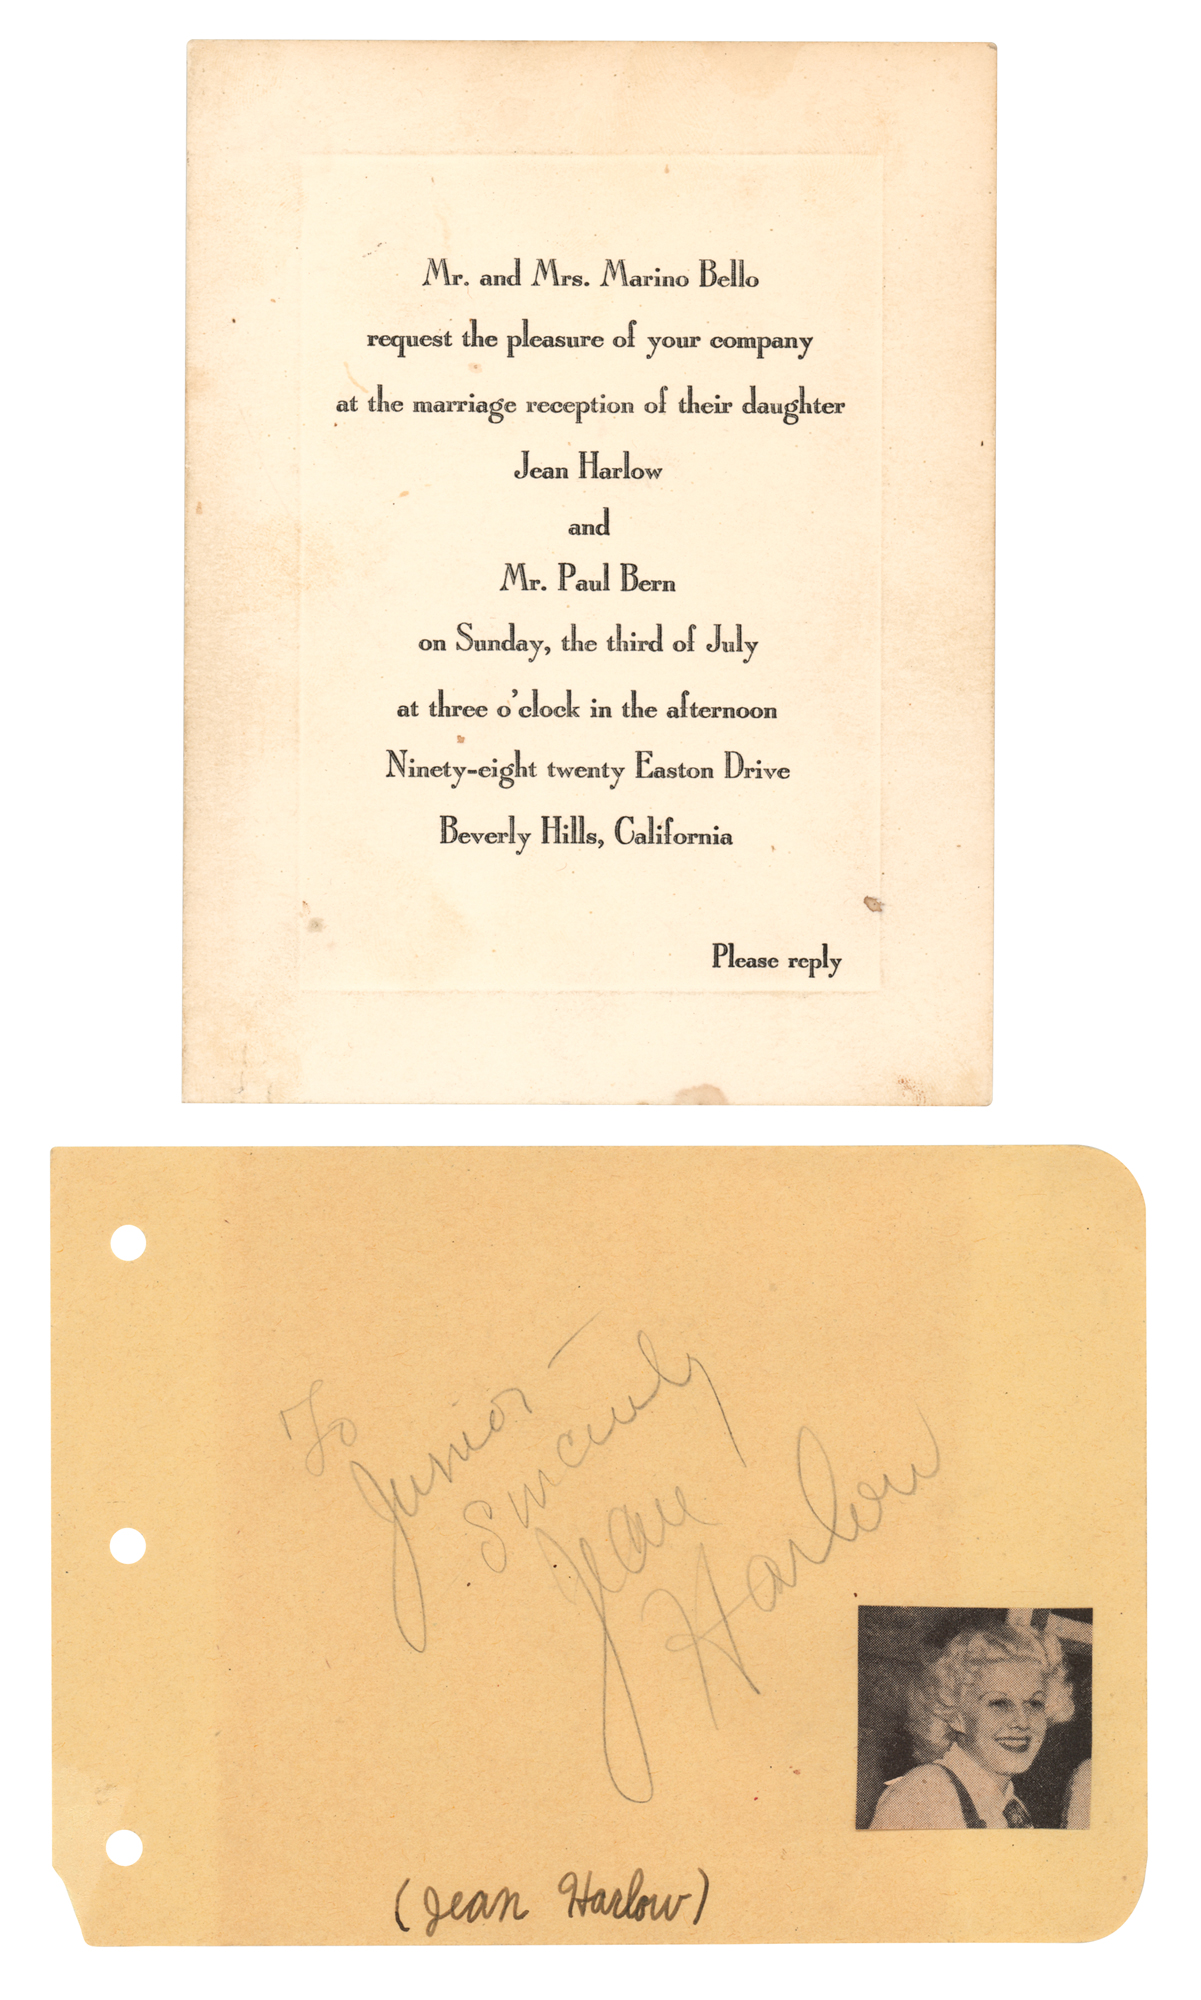 Mr. and Mrs. Marino Bello
request the pleasure of your company
at the marriage reception of their daughter
Jean Harlow
and
Mr. Paul Bern
on Sunday, the third of July
at three o'clock in the afternoon
Ninety-eight twenty Easton Drive
Beverly Hills, California
Please reply
To
Junior
Sincerely
Jean
Harlow
(Jean Harlow)